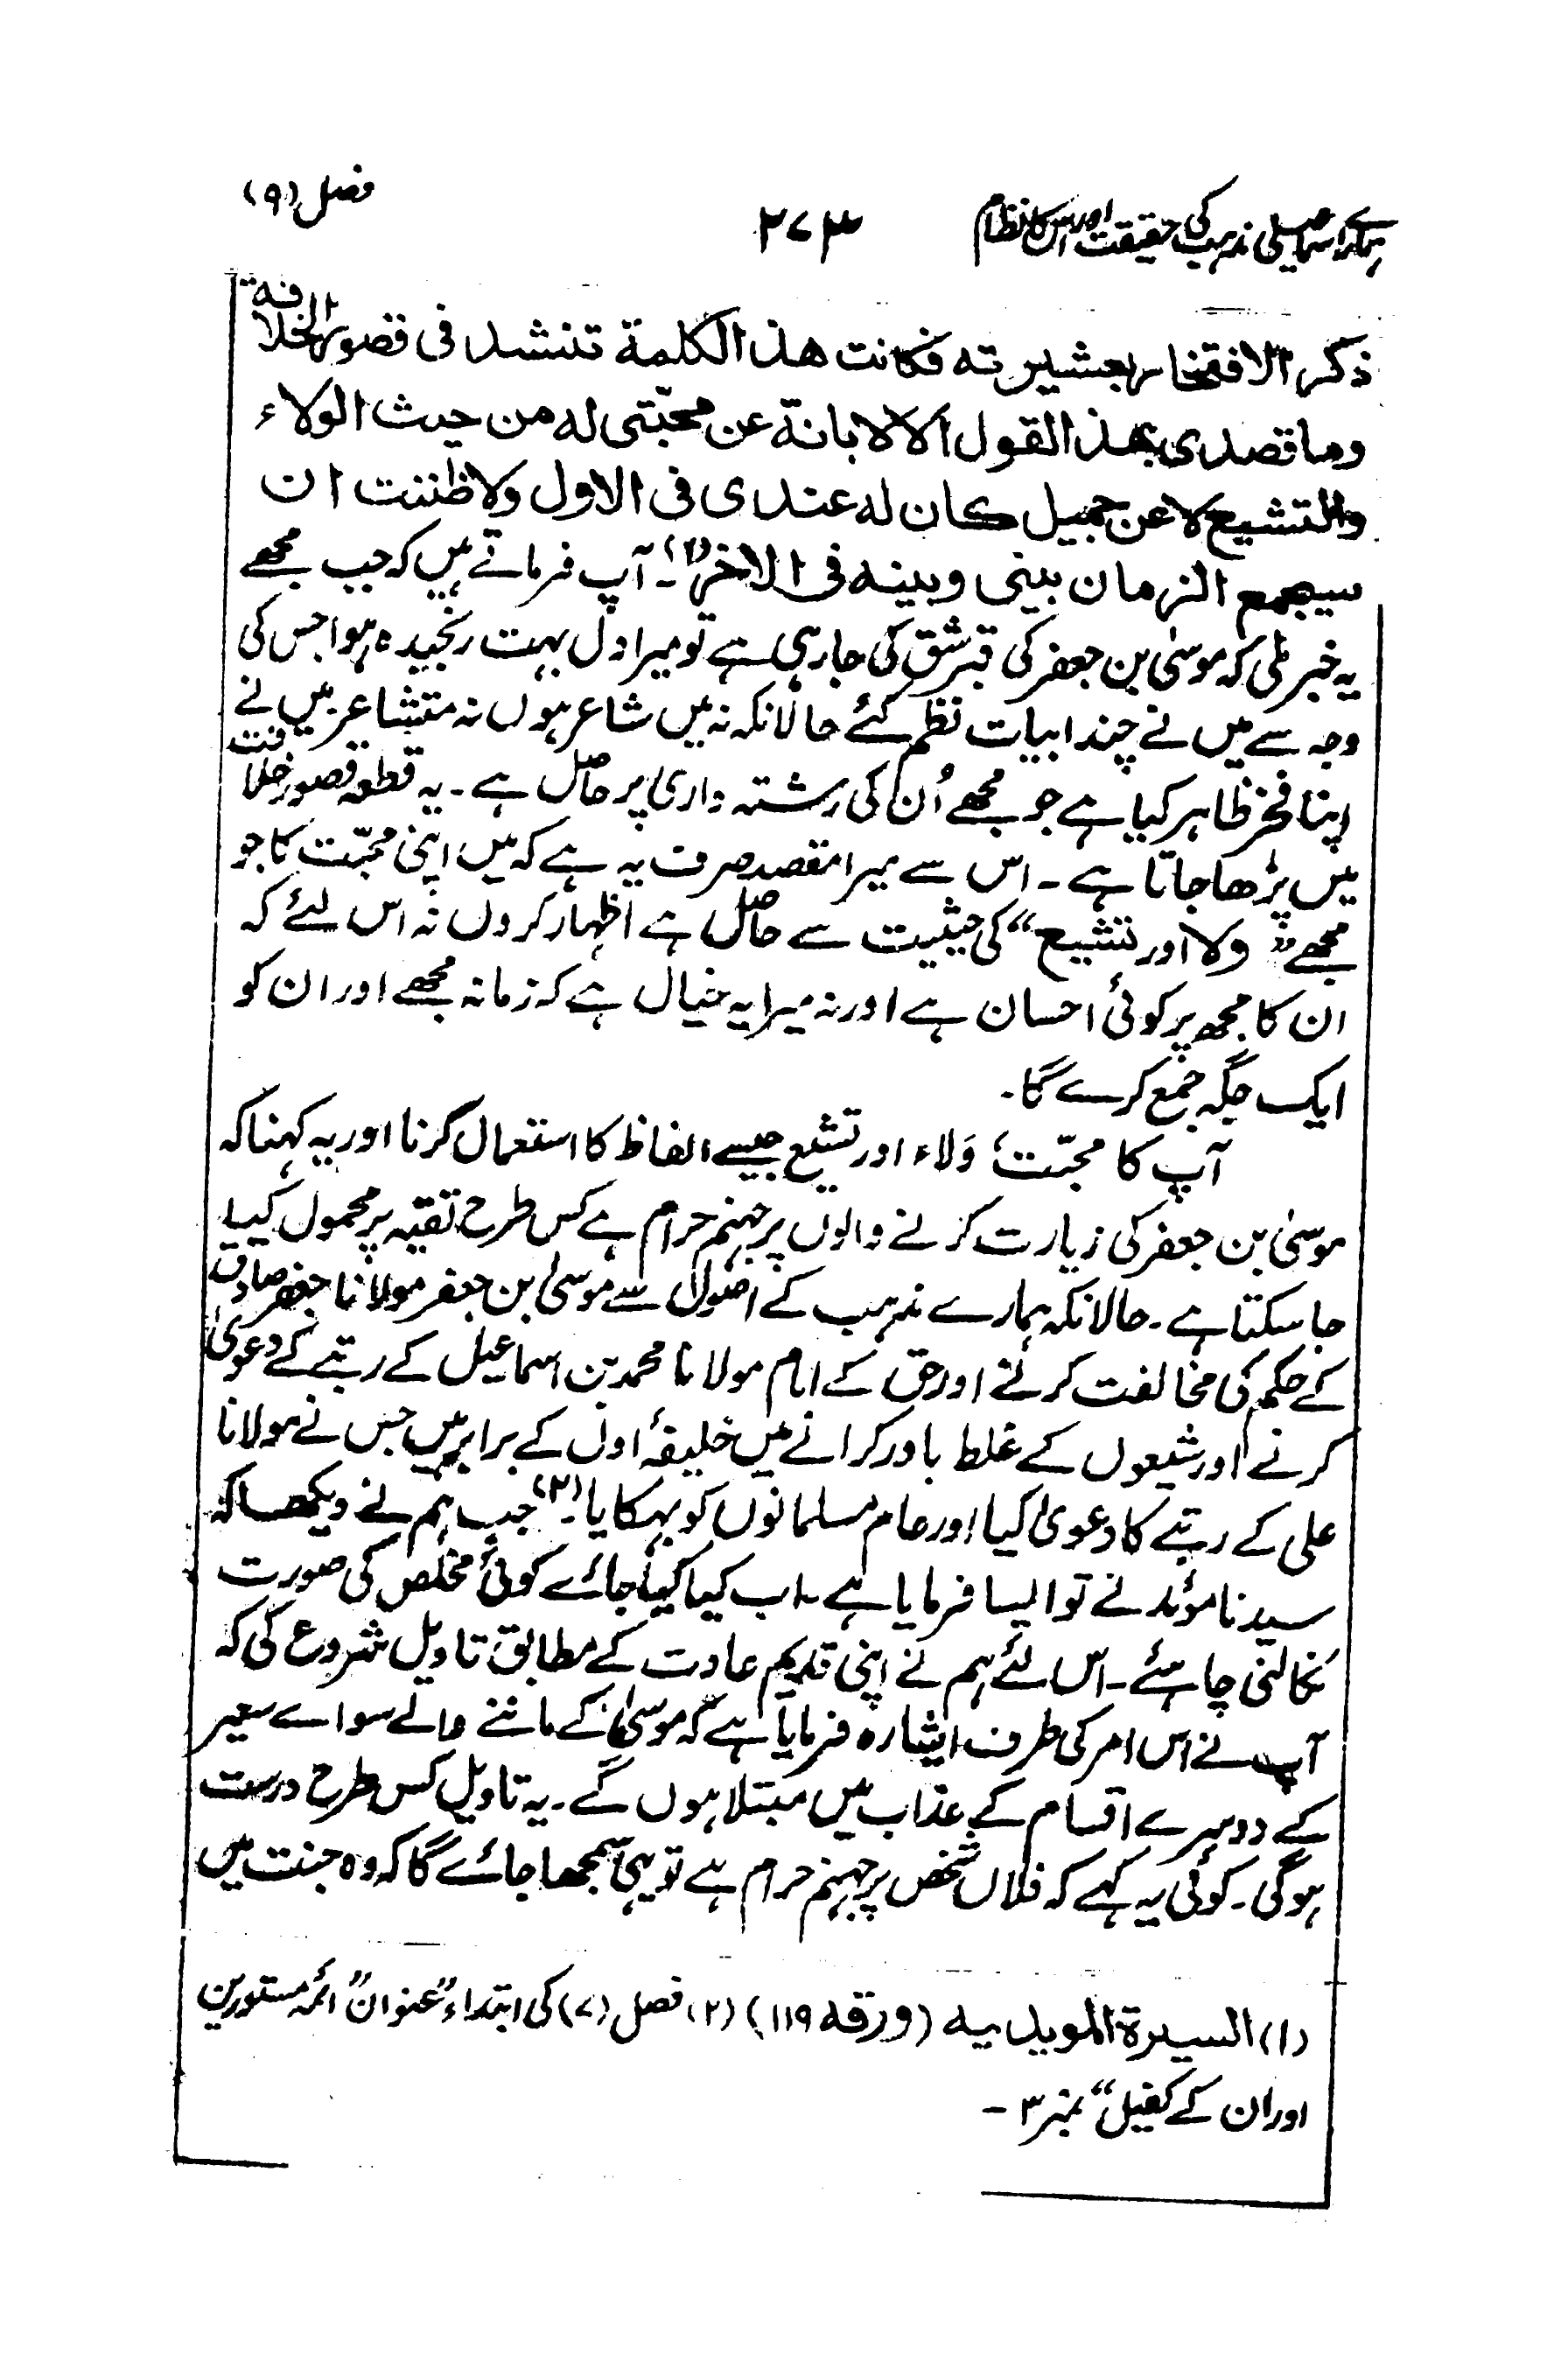 ہمارے اسماعیلی مذہب کی حقیقت اور اس کا نظام ۲۷۳ فصل (۹)
ذکر الافتخار بعشیرته فکانت هذ الکلمة تنشد فی قصور الخلافة
وما قصدی بهذ القول الا الابانة عن محبّتی له من حیث الولاء
والتشیع لا عن جمیل کان له عندی فی الاول ولا ظننت ان
سیجمع الزمان بینی وبینه فی الاخر(۱)۔ آپ فرماتے ہیں کہ جب مجھے
یہ خبر ملی کہ موسیٰ بن جعفر کی قبر شق کی جارہی ہے تو میرا دل بہت رنجیدہ ہوا جس کی
وجہ سے میں نے چند ابیات نظم کئے حالانکہ نہ میں شاعر ہوں نہ متشاعر میں نے
اپنا فخر ظاہر کیا ہے جو مجھے اُن کی رشتہ داری پر حاصل ہے۔ یہ قطعہ قصور خلافت
میں پڑھا جاتا ہے۔ اس سے میرا مقصد صرف یہ ہے کہ میں اپنی محبّت کا جو
مجھے ”ولا اور تشیع“ کی حیثیت سے حاصل ہے اظہار کروں نہ اس لئے کہ
ان کا مجھ پر کوئی احسان ہے اور نہ میرا یہ خیال ہے کہ زمانہ مجھے اور ان کو
ایک جگہ جمع کرے گا۔
آپ کا محبّت، وَلاء اور تشیع جیسے الفاظ کا استعمال کرنا اور یہ کہنا کہ
موسیٰ بن جعفر کی زیارت کرنے والوں پر جہنم حرام ہے کس طرح تقیہ پر محمول کیا
جا سکتا ہے۔ حالانکہ ہمارے مذہب کے اصول سے موسیٰ بن جعفر مولانا جعفر صادق
کے حکم کی مخالفت کرنے اور حق کے امام مولانا محمد بن اسماعیل کے رتبے کے دعویٰ
کرنے اور شیعوں کے غلط باور کرانے میں خلیفۂ اول کے برابر ہیں جس نے مولانا
علی کے رتبے کا دعویٰ کیا اور عام مسلمانوں کو بہکایا۔(۲) جب ہم نے دیکھا کہ
سیدنا موئد نے تو ایسا فرمایا ہے۔ اب کیا کیا جائے کوئی مخلص کی صورت
نکالنی چاہئے۔ اس لئے ہم نے اپنی قدیم عادت کے مطابق تاویل شروع کی کہ
آپ نے اس امر کی طرف اشارہ فرمایا ہے کہ موسیٰ کے ماننے والے سواے سعیر
کے دوسرے اقسام کے عذاب میں مبتلا ہوں گے۔ یہ تاویل کس طرح درست
ہوگی۔ کوئی یہ کہے کہ فلاں شخص پر جہنم حرام ہے تو یہی سمجھا جائے گا کہ وہ جنت میں
(۱) السیرة المویدیه (ورقه ۱۱۹) (۲) فصل (۷) کی ابتداء ”عنوان“ ائمہ مستورین
اور ان کے کفیل“ نمبر ۳ ۔